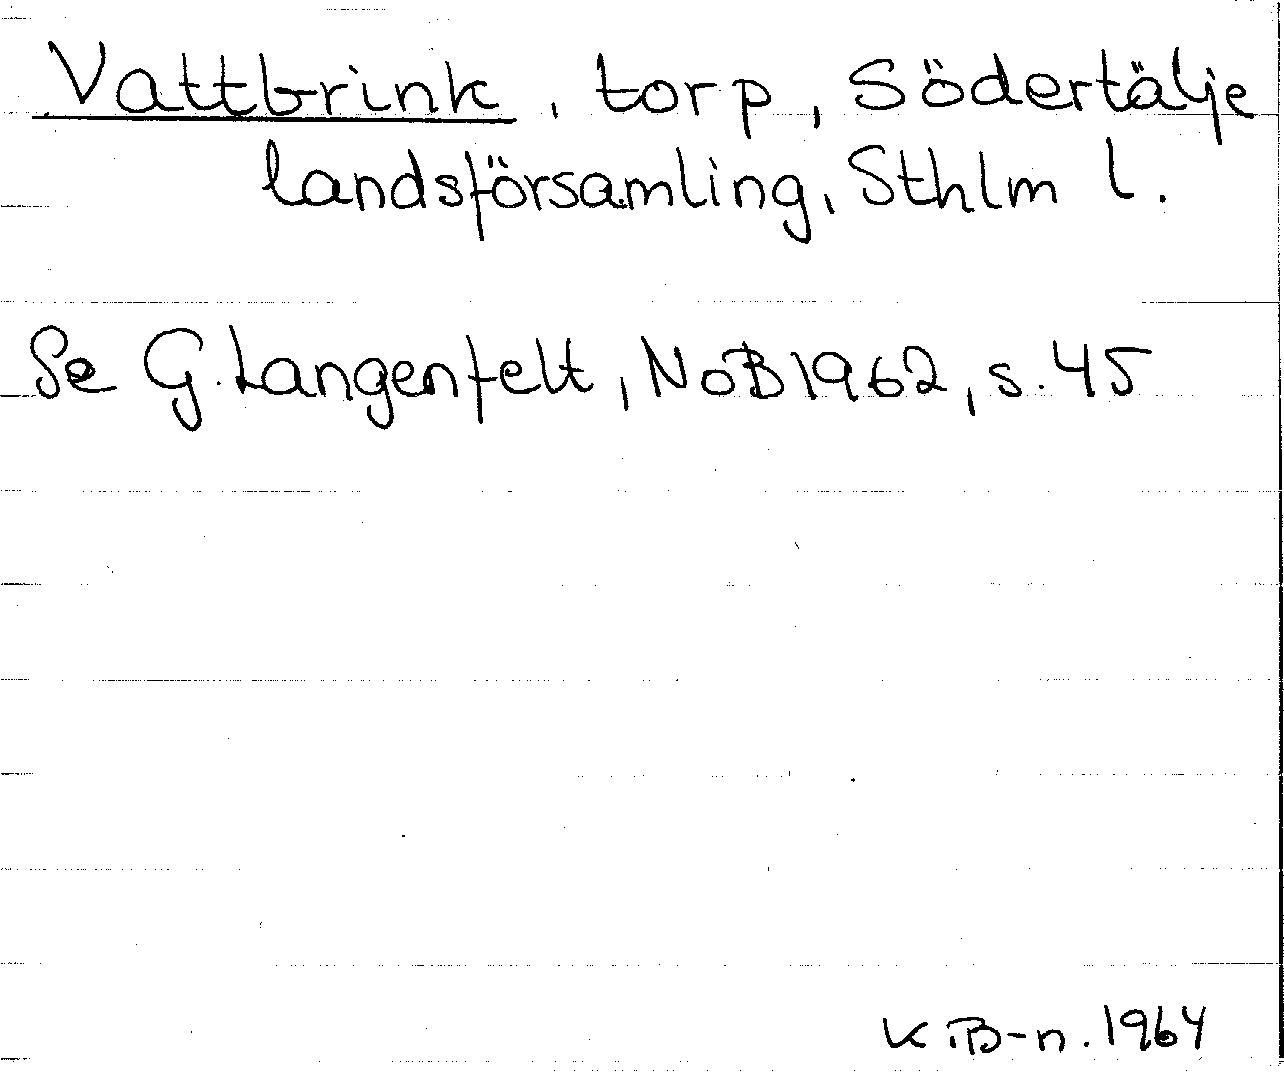 Vattbrink, torp, Södertälje
landsförsamling, Sthlm l.
Se G. Langenfelt, NoB 1962, s. 45
K iB-n. 1964